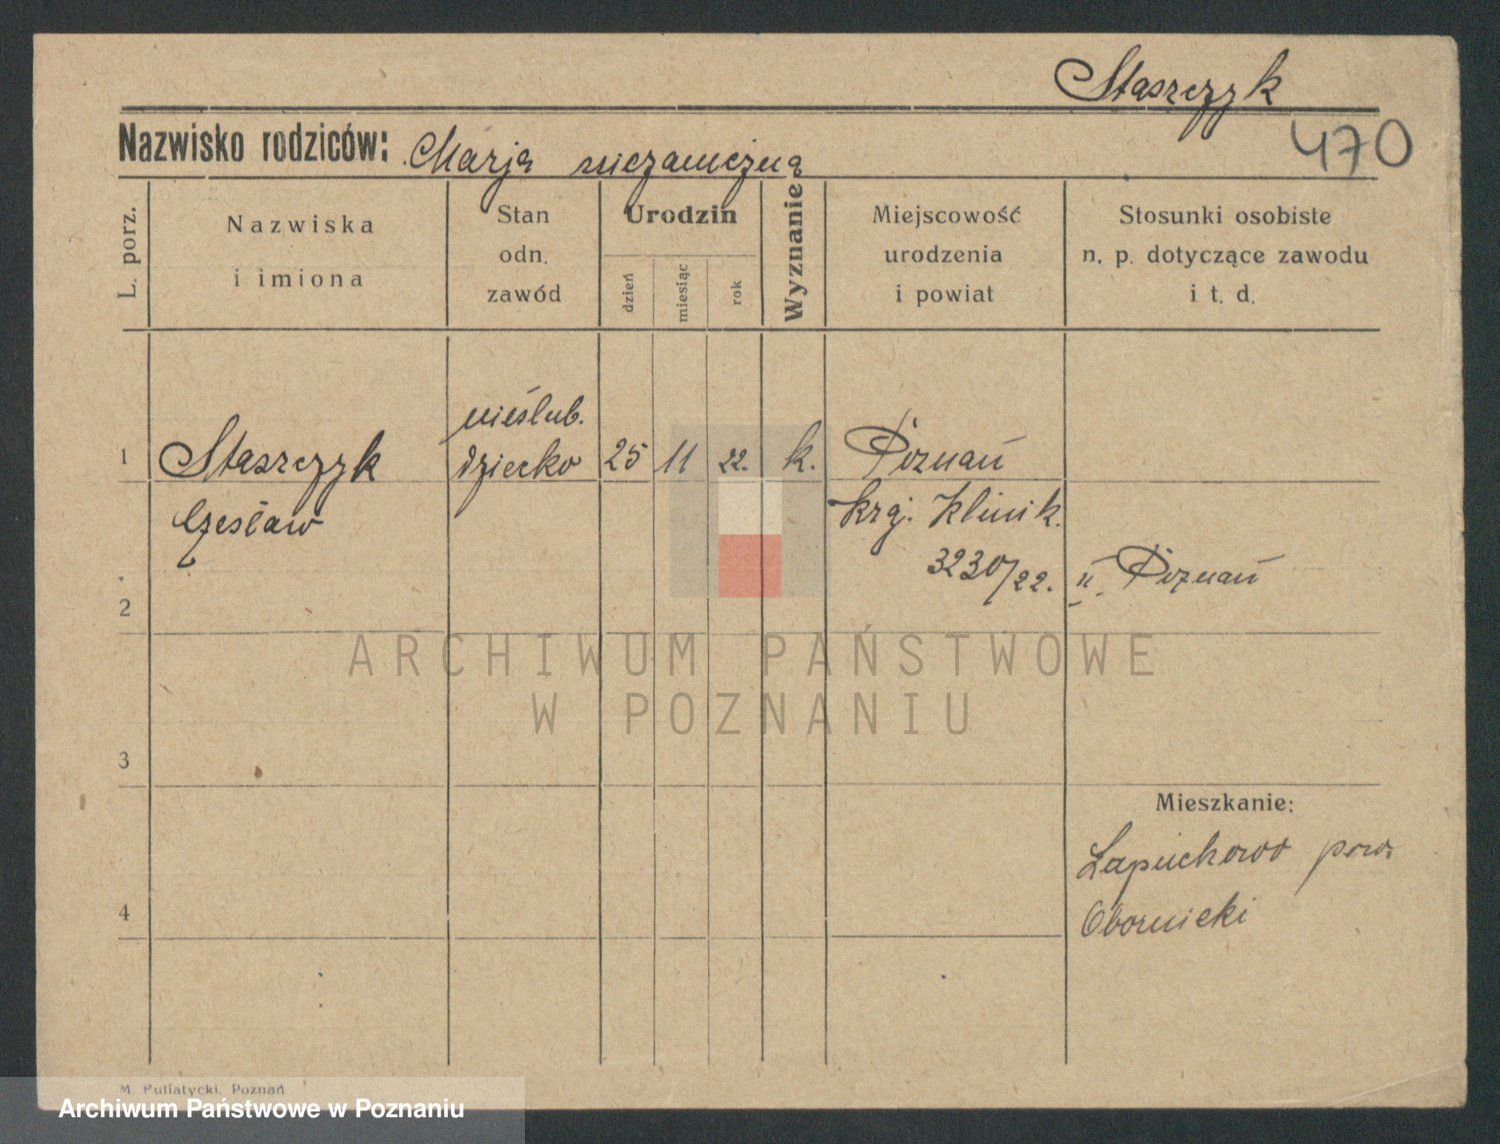 Staszczyk
470
Nazwisko rodziców: Marja niezamężna
L. porz.
Nazwiska
i imiona
Stan
odn.
zawód
Urodzin
dzień
miesiąc
rok
Wyznanie
Miejscowość
urodzenia
i powiat
Stosunki osobiste
n. p. dotyczące zawodu
i t. d.
nieślub.
1 Staszczyk dziecko 25 11 22. k. Poznań
Czesław kraj. Klinik.
3230/22. II. Poznań
2
3
Mieszkanie:
Łapuchowo pow.
Obornicki
4
M. Putiatycki, Poznań
ARCHIWUM PAŃSTWOWE
W POZNANIU
Archiwum Państwowe w Poznaniu